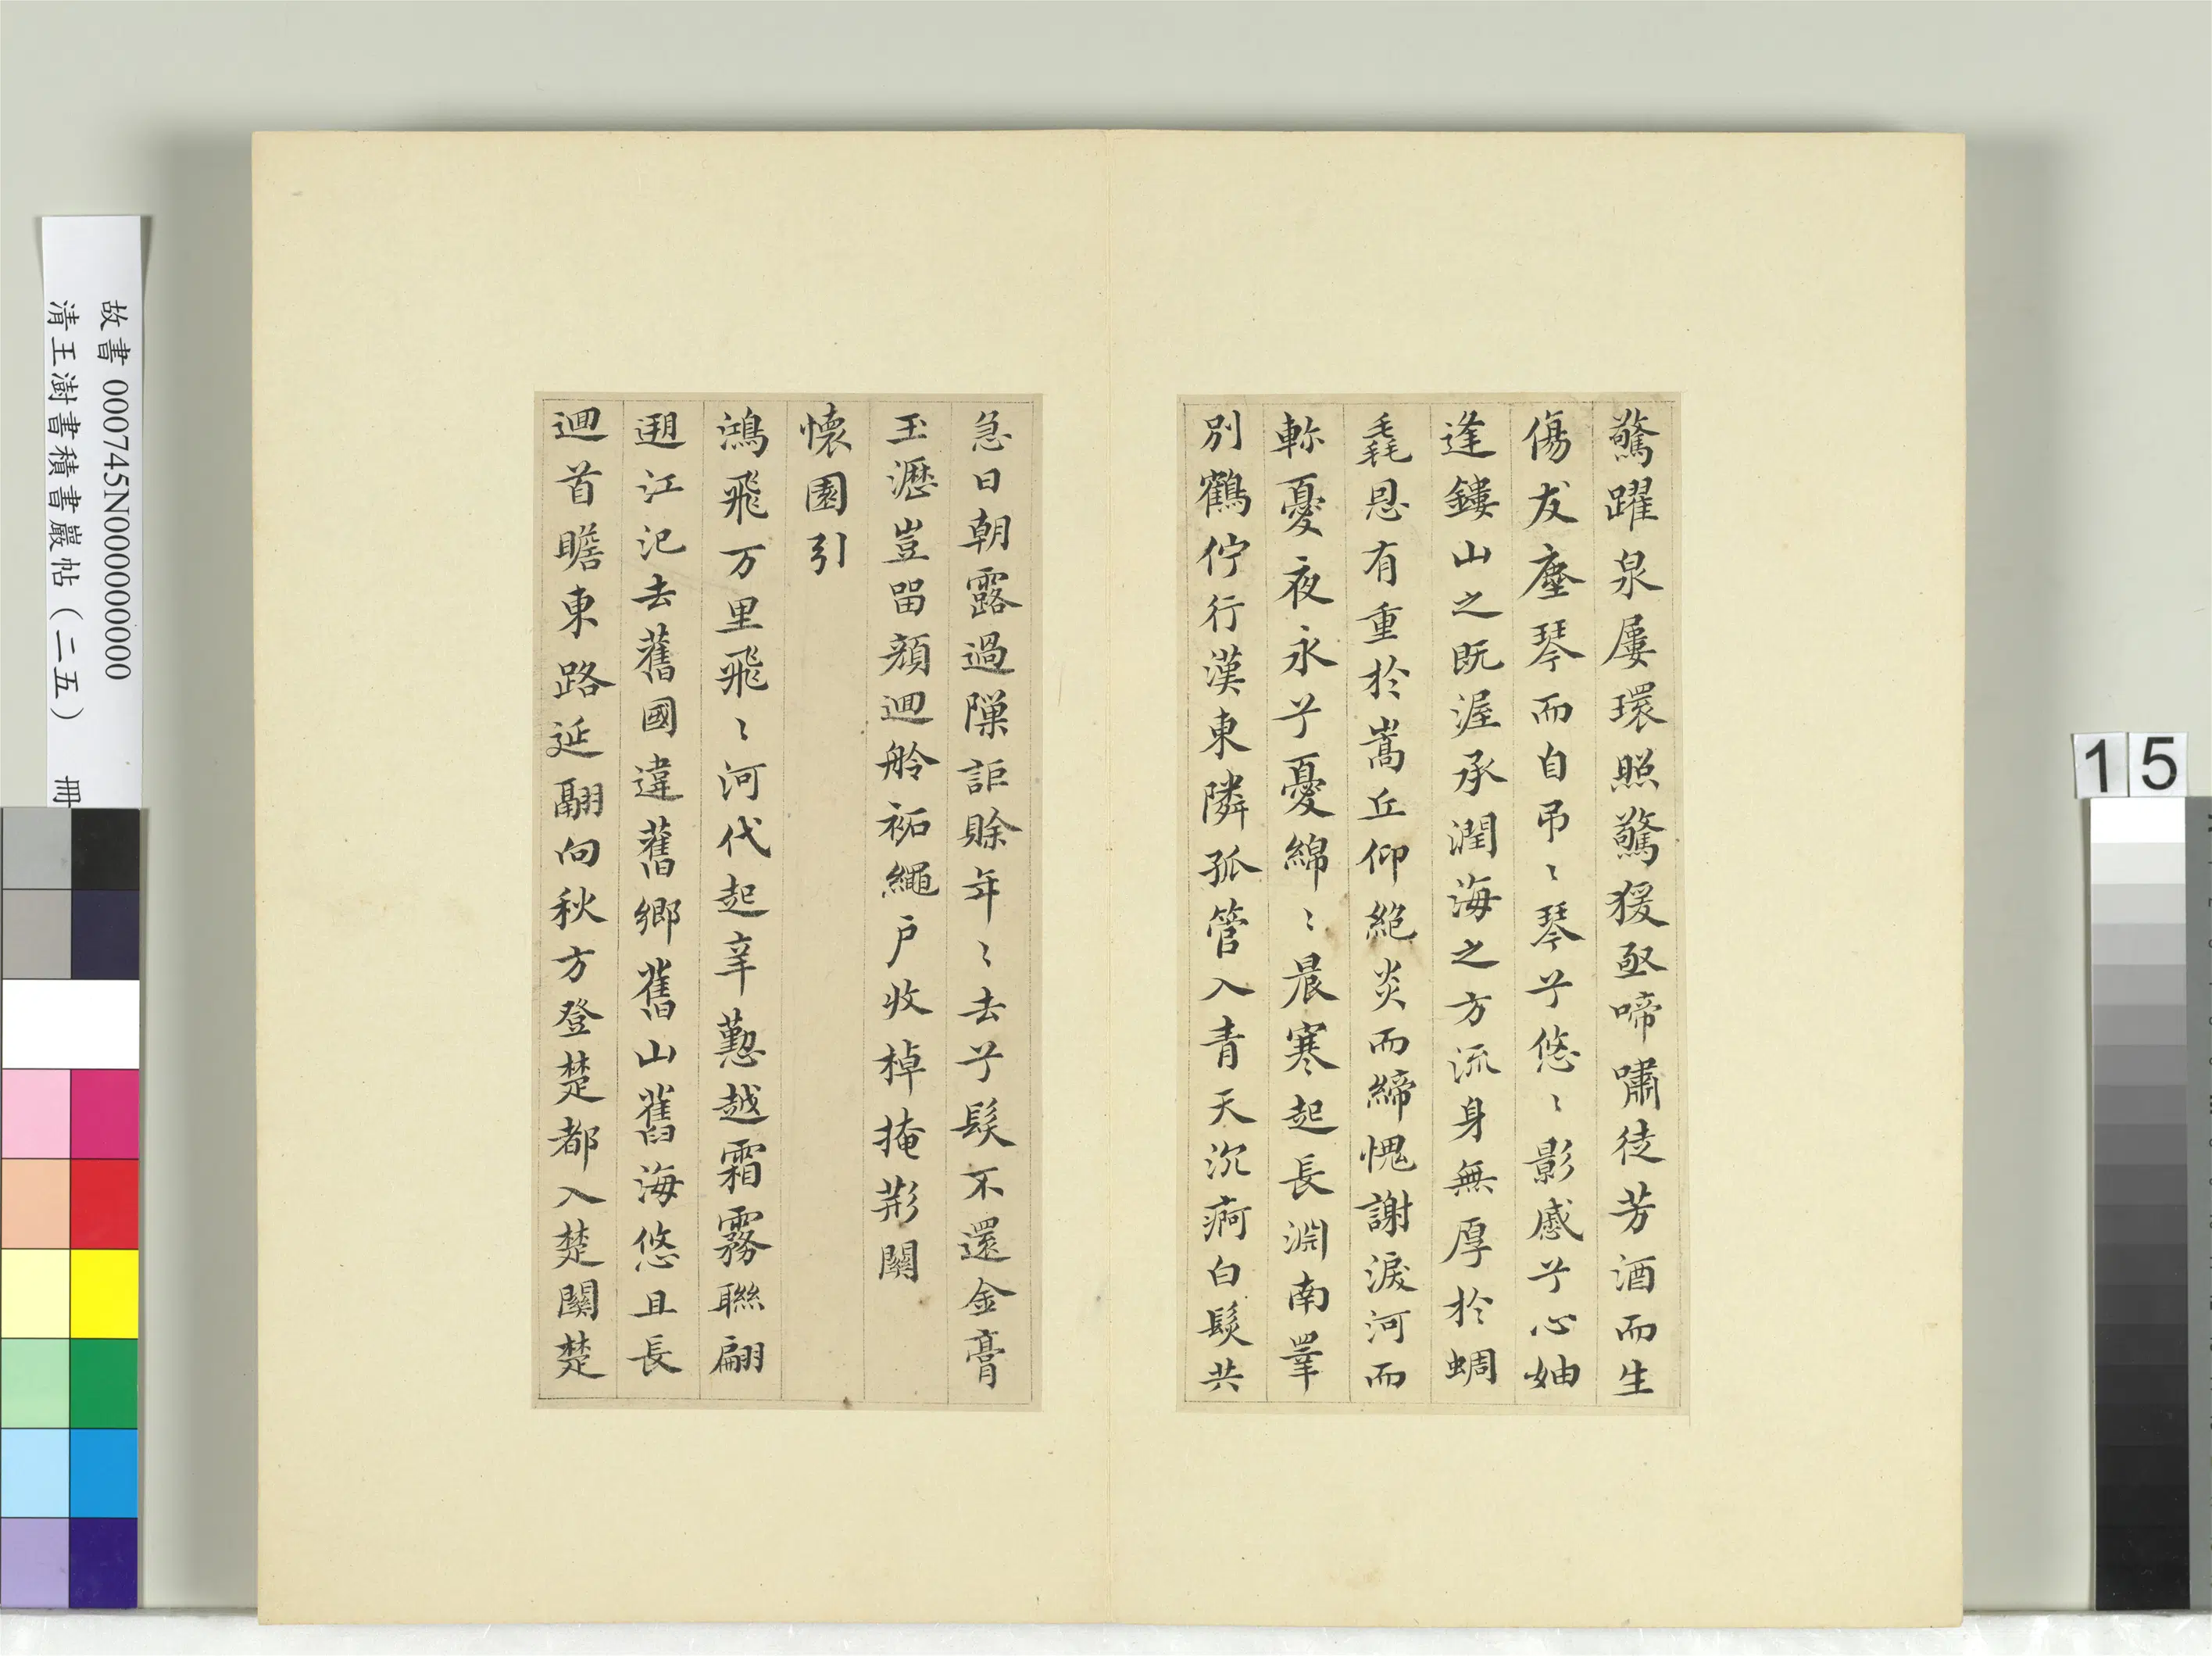 驚躍泉屢環照驚猨亟啼嘯徒芳酒而生
傷友塵琴而自吊〻琴兮悠〻影感兮心妯
逢鏤山之既渥承潤海之方流身無厚於蜩
毳恩有重於嵩丘仰絶炎而締愧謝淚河而
軫憂夜永兮憂綿〻晨寒起長淵南睪
別鶴佇行漢東隣孤管入青天沉痾白髮共
急日朝露過隟詎賒年〻去兮髮不還金膏
玉瀝豈畱顏廻舲袥繩戶收棹掩荊關
懷園引
鴻飛万里飛〻河代起辛懃越霜霧聯翩
遡江汜去舊國違舊鄉舊山舊海悠且長
廻首瞻東路延翮向秋方登楚都入楚關楚
故書 000745N000000000
清王澍書積書巖帖（二五） 冊
15